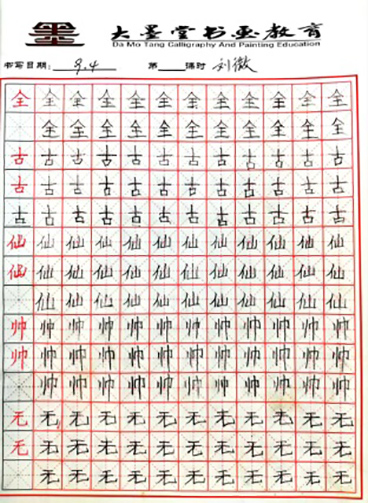 墨 大墨堂书画教育
Da Mo Tang Calligraphy And Painting Education
书写日期: 9.4 第 课时 刘微
全全全全全全全全全全全全
全全全全全全全全全全全
古古古古古古古古古古古古
古古古古古古古古古古古古
古古古古古古古古古古古古
仙仙仙仙仙仙仙仙仙仙仙仙
仙仙仙仙仙仙仙仙仙仙仙仙
仙仙仙仙仙仙仙仙仙仙仙
帅帅帅帅帅帅帅帅帅帅帅帅
帅帅帅帅帅帅帅帅帅帅帅帅
帅帅帅帅帅帅帅帅帅帅帅
无无无无无无无无无无无无
无无无无无无无无无无无无
无无无无无无无无无无无